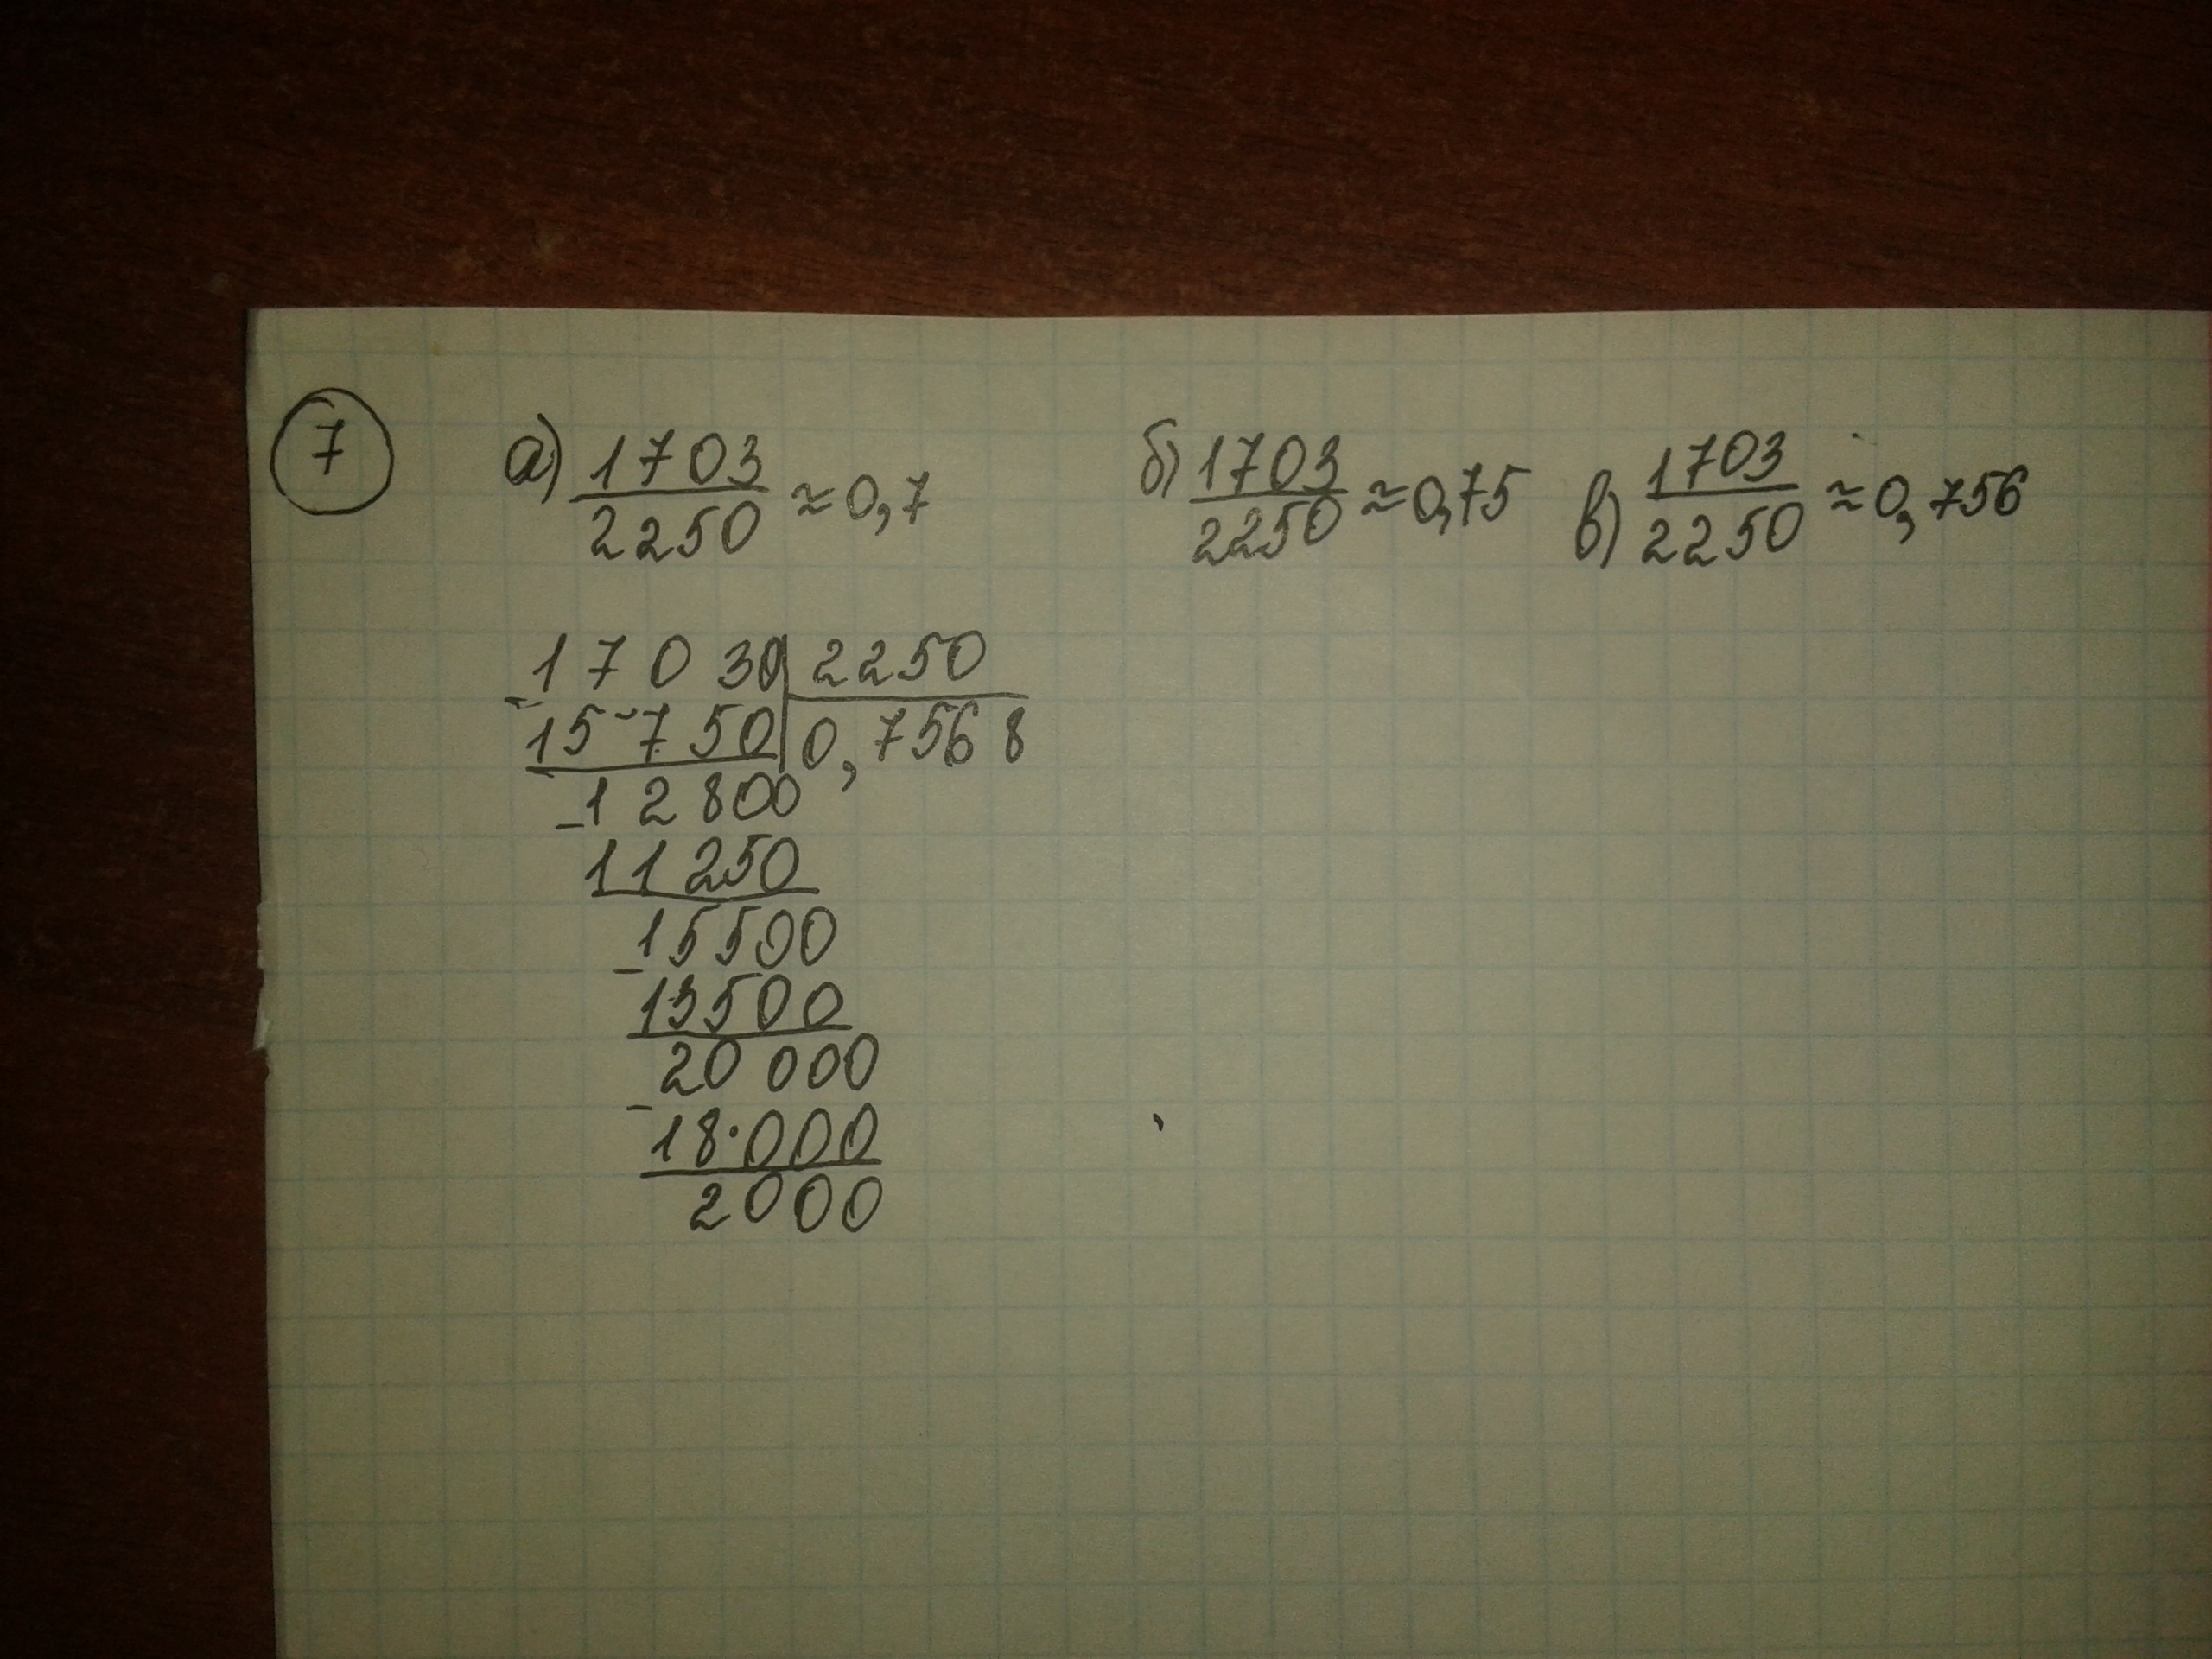 7 а) 1703/2250 ≈ 0,7 б) 1703/2250 ≈ 0,75 в) 1703/2250 ≈ 0,756
17030 | 2250
15750 | 0,7568
12800
11250
15500
13500
20000
18000
2000